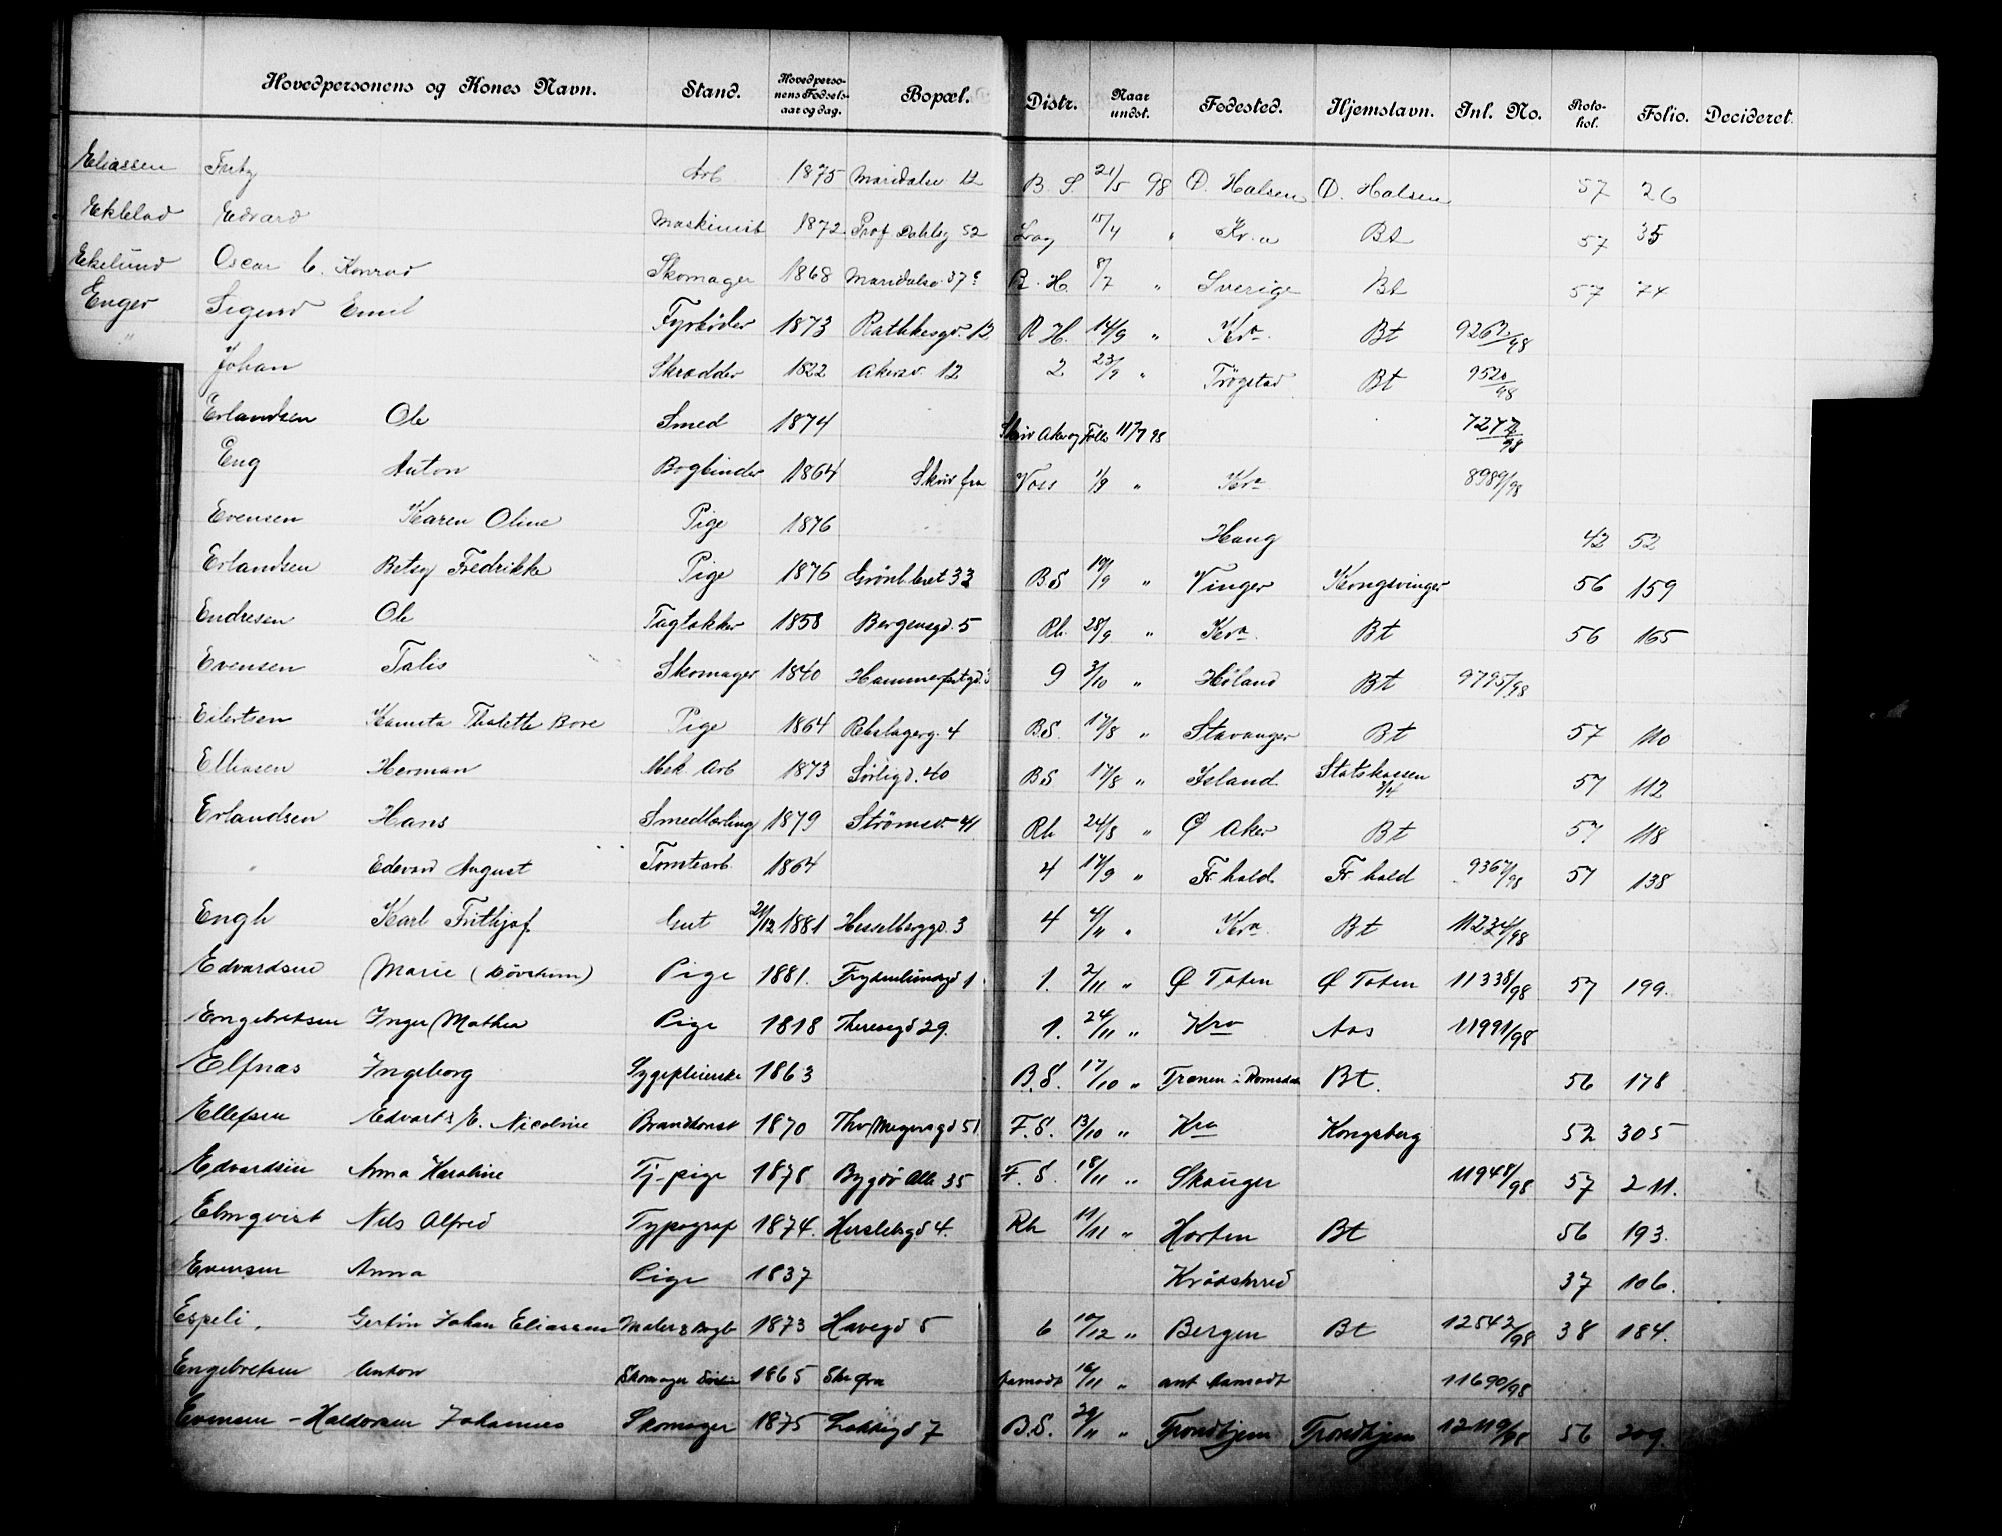 Hovedpersonens og Kones Navn. Stand. Hovedpersonens Fødselsaar og dag. Bopæl. Distr. Naar undst. Fødested. Hjemstavn. Inl. No. Protokol. Folio. Decideret.
Eliassen Fritz Arb 1875 Maridalsv 12 B. S. 21/5 98 Ø. Halsen Ø. Halsen 57 26
Ekblad Edvard Maskinist 1872 Prof Dahlsg 52 15/4 " Kr.a Bt 57 35
Ekelund Oscar C. Konrad Skomager 1868 Maridalsv. 37 R. H. 8/7 " Sverige Bt 57 74
Enger Sigurd Emil Fyrbøder 1873 Rathkesgd. 12 R H. 14/9 " Kra. Bt 9262/98
" Johan Skrædder 1822 Akersv. 12 2 23/9 " Trøgstad Bt 9520/98
Erlandsen Ole Smed 1874 Skriv Aker og Follo 11/7 98 7277/98
Eng Anton Bogbinder 1864 Skriv fra Voss 1/9 " Kra 8989/98
Evensen Karen Oline Pige 1876 Haug 42 52
Erlandsen Betsy Fredrikke Pige 1876 Grønl leret 32 B S 10/9 " Vinger Kongsvinger 56 159
Endresen Ole Taglækker 1858 Bergensgd. 5 Rh. 28/9 " Kra. Bt 56 165
Evensen Talis Skomager 1840 Hammerfestgd. 9 3/10 " Høland Bt 9795/98
Eilertsen Thalette Bore Pige 1864 Rebslagerg. 4 B.S. 17/8 " Stavanger Bt 57 110
Elliasen Herman Mek Arb 1873 Sørligd. 40 B S 17/8 " Island Statskassen 3/4 57 112
Erlandsen Hans Smedlærling 1879 Strømsv. 41 Rh 24/8 " Ø Aker Bt 57 118
" Edevard August Tomtearb. 1864 4 14/9 " Fr. hald. Fr hald 9367/98 57 138
Engh Karl Frithjof Gut 21/12 1881 Hesselberggd. 3 4 4/11 " Kra Bt 11234/98
Edvardsen Marie (Døvstum) Pige 1881. Frydenlundgd 1 1. 2/11 " Ø Toten Ø Toten 11338/98 57 199.
Engebretsen Inger Mathea Pige 1818 Theresegd 29. 1. 24/11 " Kra Aas 11991/98
Elfnæs Ingeborg Sygepleierske 1863 B.S. 17/10 " i Romsdalen Bt. 56 178
Ellefsen Edvart & E. Nicoline Brandkonst 1870 Thv Meyersgd 51 F.S. 13/10 " Kra Kongsberg 52 305
Edvardsen Anna Karoline Tj.-pige 1878 Bygdø Alle 35 F. S. 18/11 " Skouger 11948/98 57 211.
Elmqvist Nils Alfred Typograf 1874. Herslebsgd 4. Rh 11/11 " Horten Bt 56 193.
Evensen Anna Pige 1837 Krødsherred 37 106.
Espeli, Johan Eliassen 1873 Havegd 5 6 10/12 " Bergen Bt 12542/98 38 184.
Engebretsen Anton Skomager 1865 Skr fra Aamodt 16/11 " ant Aamodt 11690/98
Evensen - Haldorsen Johannes Skomager 1875 Lakkegd 7 B.S. 29/11 " Trondhjem Trondhjem 12119/98 56 209.